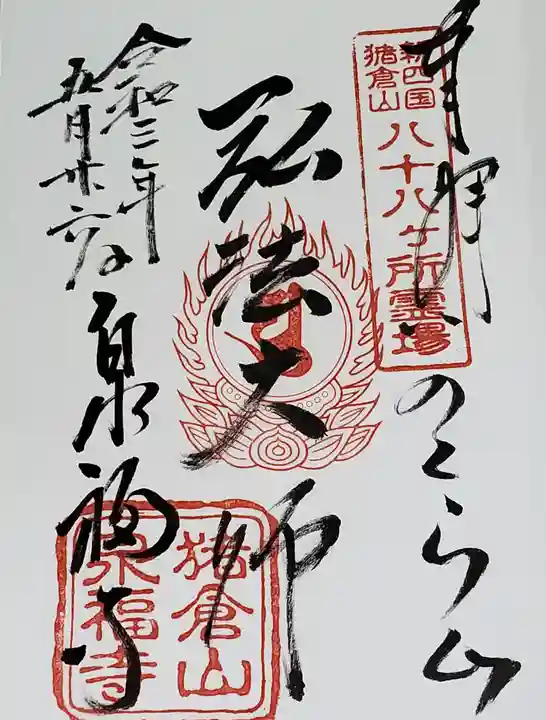 奉拝
のくら山
新四国
猪倉山
八十八ヶ所霊場
弘法大師
令和三年
五月廿六日
泉福寺
猪倉山
泉福寺